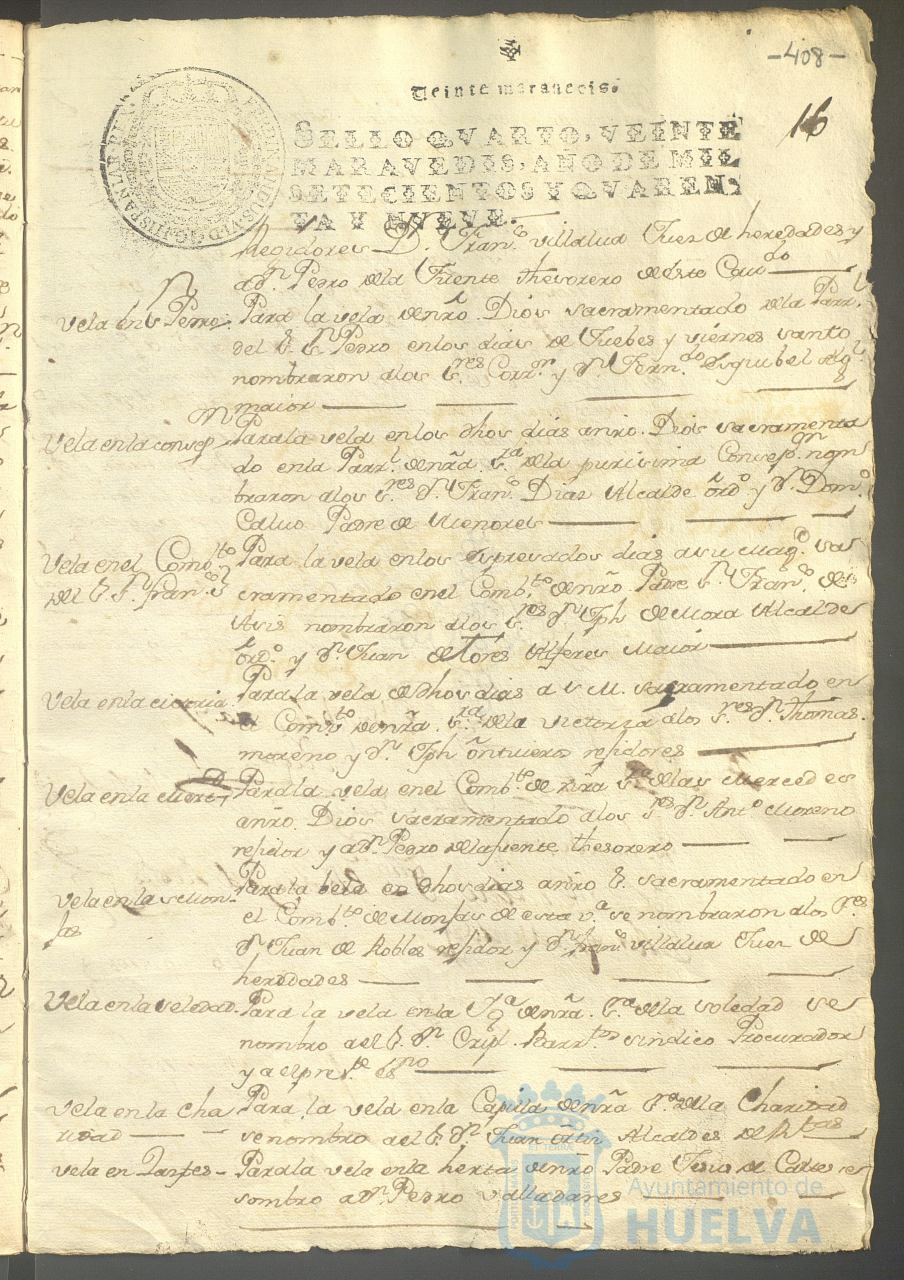 -408-
16
Veinte maravedis.
SELLO QVARTO, VEINTE
MARAVEDIS, AÑO DE MIL
SETECIENTOS Y QVAREN-
TA Y NUEVE.
Regidores D. Fran.co villalua Juez de heredades y
a Dn Pedro dela Fuente thesorero de este Cav.do
Vela en Sn Pedro. Para la vela de nro. Dios sacramentado dela Parr.l
del Sr. Sn Pedro en los dias de Juebes y viernes santo
nombraron alos Sres Corr.or y Dn Fern.do Esquibel Alg.l
maior
Vela en la consep.on Para la vela en los dhos dias a nro. Dios sacramenta
do en la Parr.l de nra. Sra. dela purissima Consep.on nom
braron alos Sres Dn Fran.co Dias Alcalde ord.o y Dn Dom.o
Calvo Padre de Menores
Vela en el Comb.to Para la vela en los expresados dias a su Mag.d sa
del Sr Sn Fran.co cramentado en el Comb.to de nro. Padre Sn Fran.co de
Asis nombraron alos Sres Dn Jph de Mora Alcalde
ord.o y Dn Juan de Tores Alferes Maior
Vela en la victoria. Para la vela de dhos dias a S. M. sacramentado en
el Comb.to de nra. Sra. dela victoria alos Sres Dn Thomas
moreno y Dn Jph ontiuero rejidores
Vela en la Merced Para la vela en el Comb.to de nra Sra delas Mercedes
a nro. Dios sacramentado alos Sres Dn Ant.o Moreno
rejidor y a Dn Pedro dela fuente thesorero
Vela en las Mon- Para la bela en dhos dias a nro S. sacramentado en
jas el Comb.to de Monjas de esta va. se nombraron alos Sres
Dn Juan de Robles rejidor y Dn fran.co villalua Juez de
heredades
Vela en la soledad. Para la vela en la Yga. de nra. Sra. dela soledad se
nombro a el Sr Dn Crijl. Barr.tos sindico Procurador
y a el pres.te esno
Vela en la cha Para la vela en la Capilla de nra Sra. dela Charidad
ridad se nombro a el Sr Dn Juan Alcaldes de
vela en Para la vela en la de nro Padre Jesus
nombro a Dn Pedro valladares
Ayuntamiento de
HUELVA